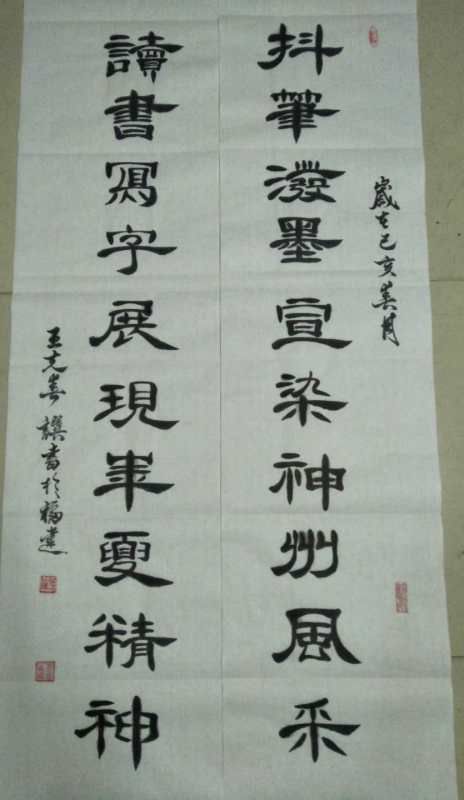 歲在己亥春月
抖筆潑墨宣染神州風采
讀書寫字展現華夏精神
王克春譔書於福建